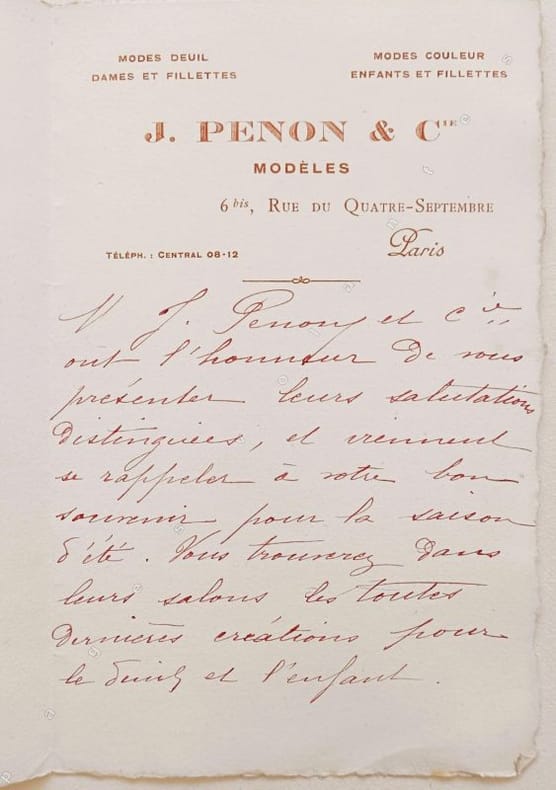 MODES DEUIL
DAMES ET FILLETTES
MODES COULEUR
ENFANTS ET FILLETTES
J. PENON & CIE
MODÈLES
6 bis, RUE DU QUATRE-SEPTEMBRE
Paris
TÉLÉPH. : CENTRAL 08-12
J. Penon et Cie
ont l'honneur de vous
présenter leurs salutations
distinguées, et viennent
se rappeler à votre bon
souvenir pour la saison
d'été. Vous trouverez dans
leurs salons les toutes
dernières créations pour
le deuil et l'enfant.